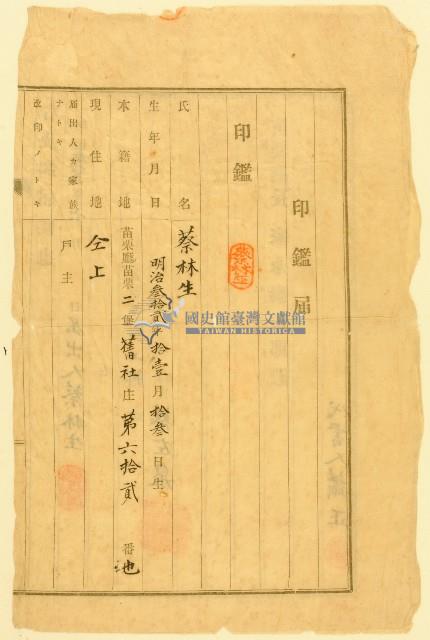 印鑑屆
印鑑
蔡林生
氏名 蔡林生
生年月日 明治叁拾貳年拾壹月拾叁日生
本籍地 苗栗廳苗栗二堡舊社庄第六拾貳番地
現住地 仝上
屆出人カ家族ナトキ 戶主
改印ノトキ
國史館臺灣文獻館
TAIWAN HISTORICA